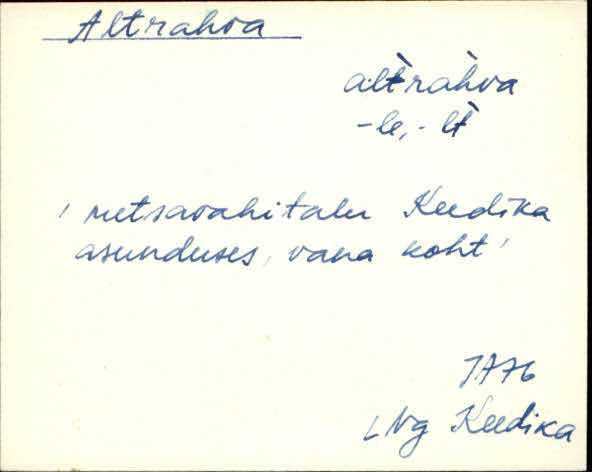 Altrahva
al̀tràhva
-le, -l̀t
' metsavahitalu Keedika
asunduses, vana koht '
JA76
LNg Keedika